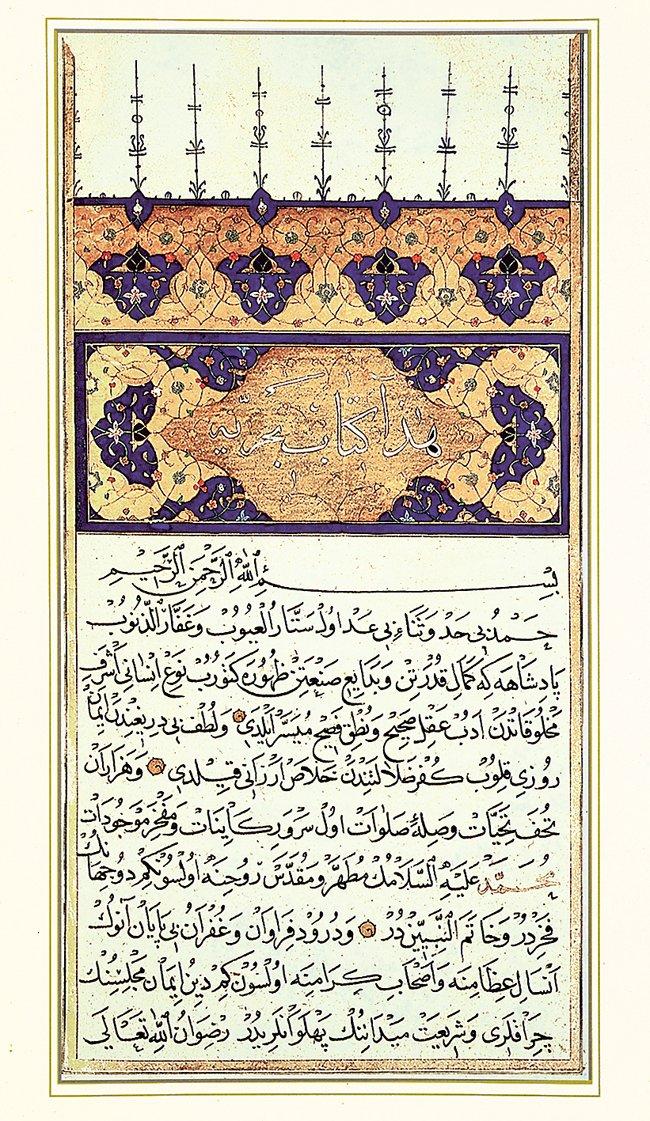 هذا كتاب بحريه
بِسْمِ اللّٰهِ الرَّحْمٰنِ الرَّحِيمِ
حمد بی حد و ثناء بی عد اول ستار العیوب و غفار الذنوب
پادشاهه که کمال قدرتن و بدایع صنعتن ظهوره کتورب نوع انسانی اشرف
مخلوقاتدن ادب عقل صحیح و نطق فصیح میسر ایلدی و لطف بی دریغندن ایمان
روزی قلوب کفر ضلالتندن خلاص ارزانی قیلدی و هزاران
تحف تحیات و صلهٔ صلوات اول سرور کاینات و مفخر موجودات
محمد علیه السلامك مطهر و مقدس روحنه اولسونکم دو جهانك
فخریدر و خاتم النبییندر و درود فراوان و غفران بی پایان آنوك
انسال عظامنه و اصحاب کرامنه اولسون کم دین ایمان مجلسنك
چراقلری و شریعت میدانینك پهلوانلریدر رضوان الله تعالی